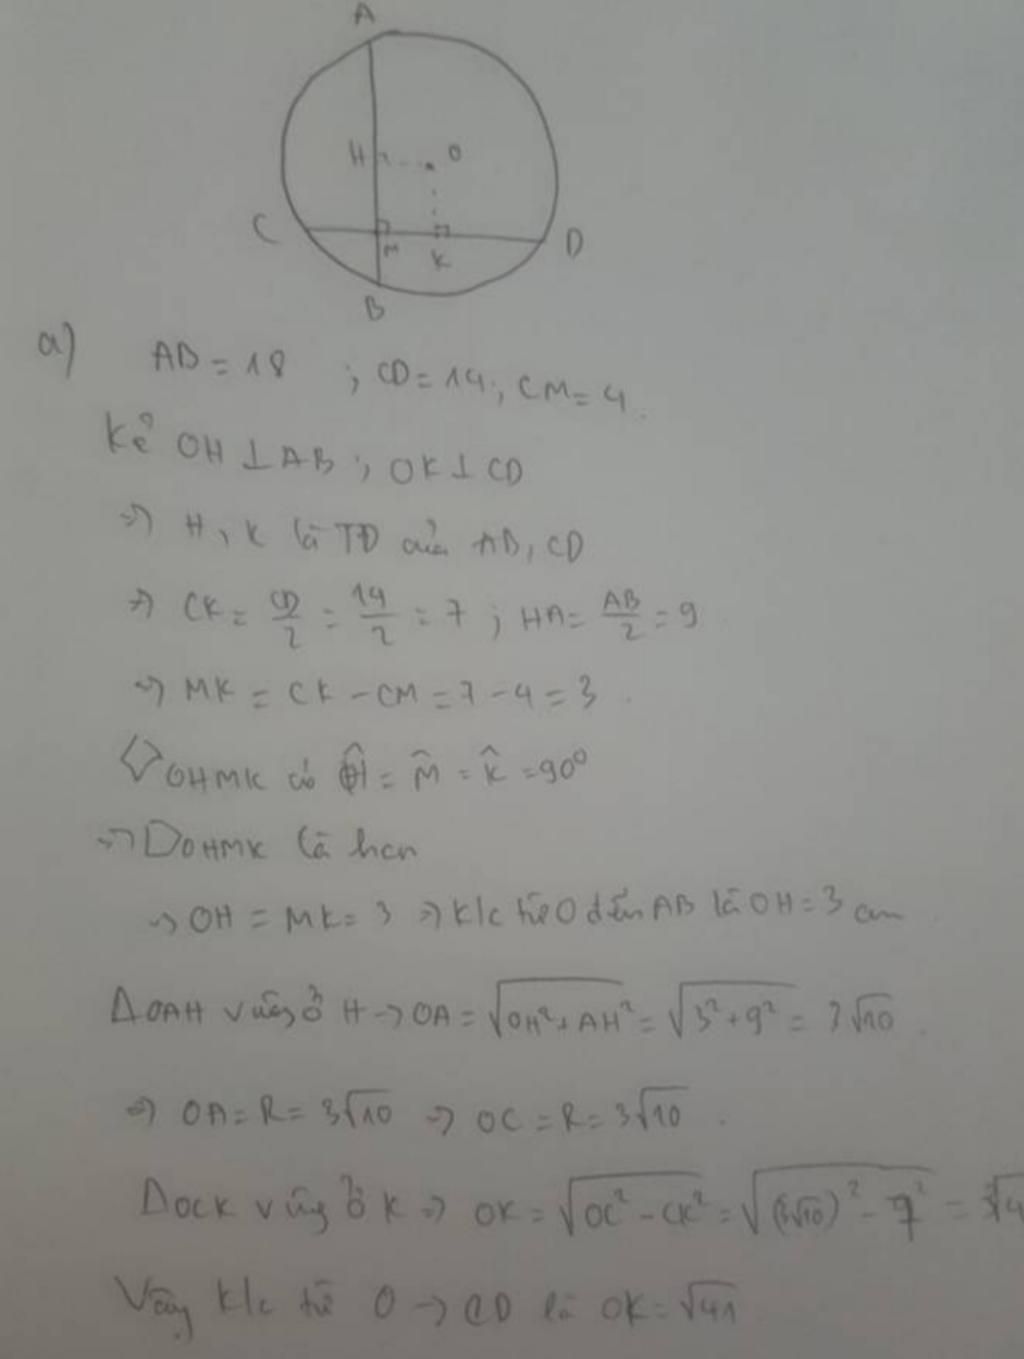 A
H
O
C
M
K
D
B
a) AB = 18 ; CD = 14 ; CM = 4.
Kẻ OH ⊥ AB ; OK ⊥ CD
=> H, K là TĐ của AB, CD
=> CK = CD/2 = 14/2 = 7 ; HA = AB/2 = 9
=> MK = CK - CM = 7 - 4 = 3.
◇OHMK có Ĥ = M̂ = K̂ = 90⁰
=> ▱OHMK là hcn
=> OH = MK = 3 => K/c từ O đến AB là OH = 3 cm
ΔOAH vuông ở H -> OA = √(OH² + AH²) = √(3² + 9²) = 3√10.
=> OA = R = 3√10 => OC = R = 3√10.
ΔOCK vuông ở K => OK = √(OC² - CK²) = √((3√10)² - 7²) =
Vậy K/c từ O -> CD là OK = √41